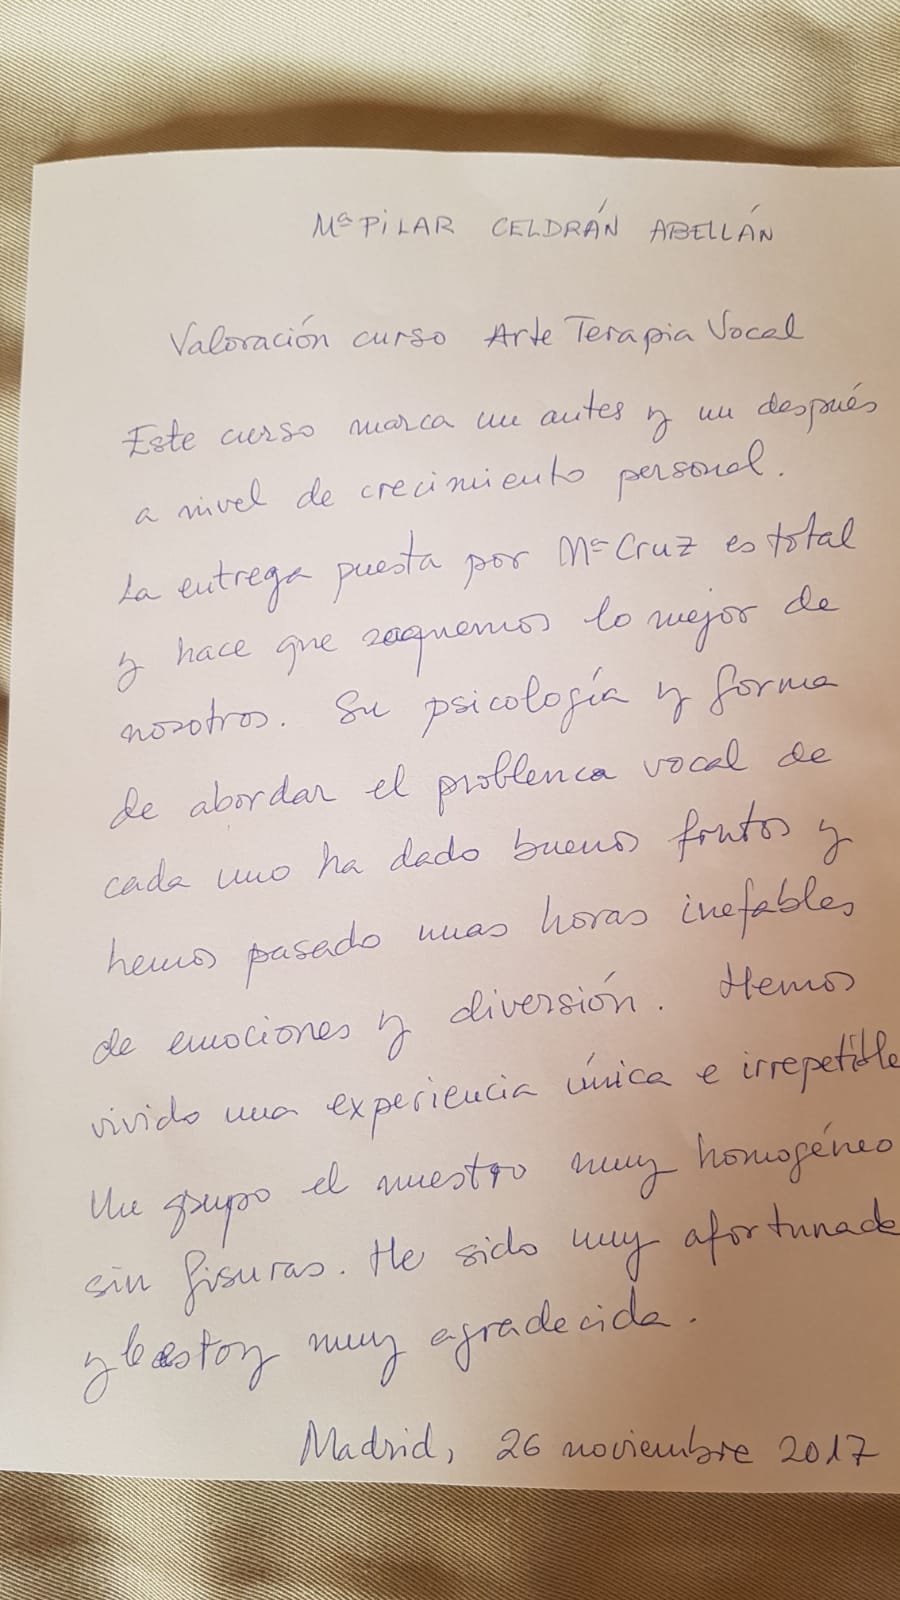 Mª PILAR CELDRÁN ABELLÁN
Valoración curso Arte Terapia Vocal
Este curso marca un antes y un después
a nivel de crecimiento personal.
La entrega puesta por Mª Cruz es total
y hace que saquemos lo mejor de
nosotros. Su psicología y forma
de abordar el problema vocal de
cada uno ha dado buenos frutos y
hemos pasado unas horas inefables
de emociones y diversión. Hemos
vivido una experiencia única e irrepetible
Un grupo el nuestro muy homogéneo
sin fisuras. He sido muy afortunada
y le estoy muy agradecida.
Madrid, 26 noviembre 2017